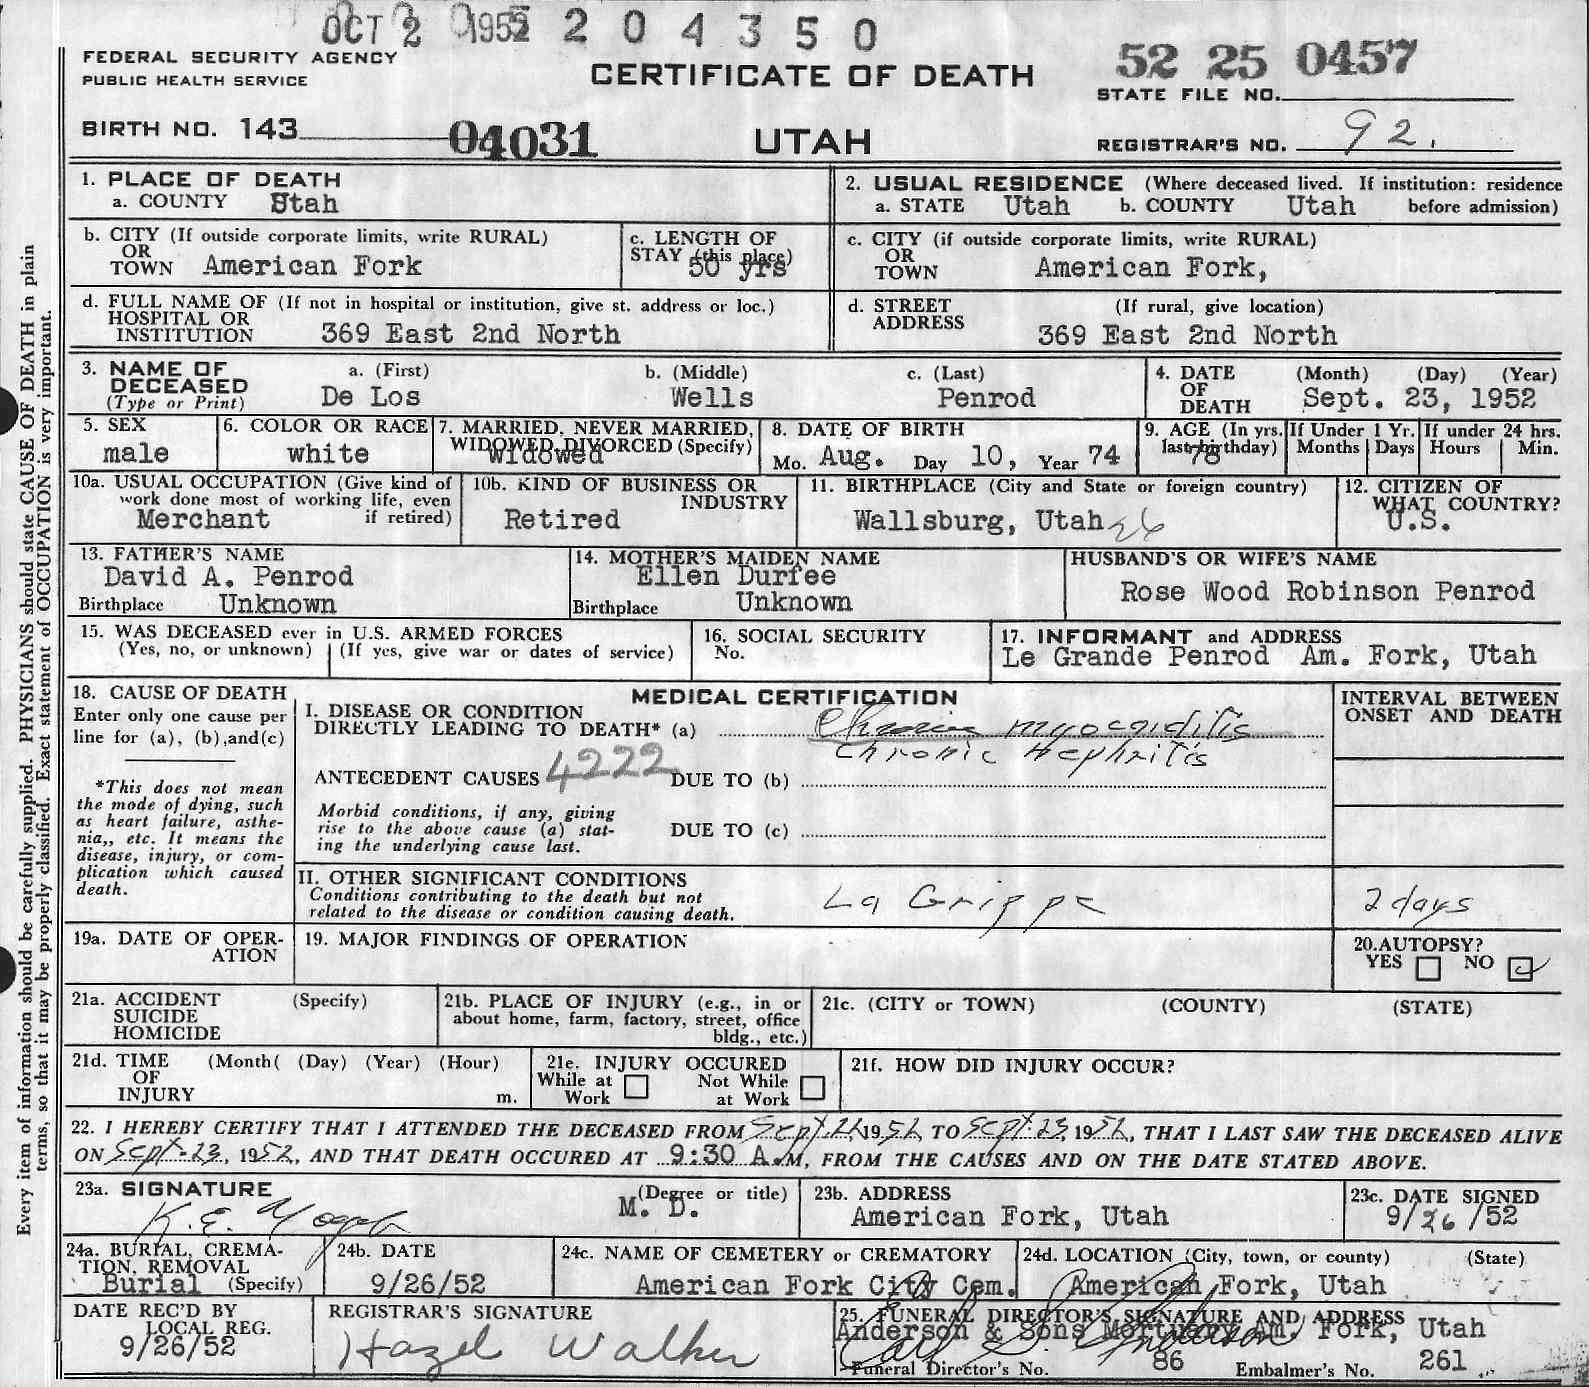 OCT 2 1952 204350
FEDERAL SECURITY AGENCY
PUBLIC HEALTH SERVICE
CERTIFICATE OF DEATH
52 25 0457
STATE FILE NO.
BIRTH NO. 143 04031 UTAH
REGISTRAR'S NO. 92.
1. PLACE OF DEATH
a. COUNTY Utah
2. USUAL RESIDENCE (Where deceased lived. If institution: residence
a. STATE Utah b. COUNTY Utah before admission)
b. CITY (If outside corporate limits, write RURAL)
OR
TOWN American Fork
c. LENGTH OF
STAY (this place)
50 yrs
c. CITY (if outside corporate limits, write RURAL)
OR
TOWN American Fork,
d. FULL NAME OF (If not in hospital or institution, give st. address or loc.)
HOSPITAL OR
INSTITUTION 369 East 2nd North
d. STREET (If rural, give location)
ADDRESS
369 East 2nd North
3. NAME OF a. (First) b. (Middle) c. (Last)
DECEASED
(Type or Print) De Los Wells Penrod
4. DATE (Month) (Day) (Year)
OF
DEATH Sept. 23, 1952
5. SEX
male
6. COLOR OR RACE
white
7. MARRIED, NEVER MARRIED,
WIDOWED, DIVORCED (Specify)
widowed
8. DATE OF BIRTH
Mo. Aug. Day 10, Year 74
9. AGE (In yrs. last birthday)
78
If Under 1 Yr.
Months Days
If under 24 hrs.
Hours Min.
10a. USUAL OCCUPATION (Give kind of
work done most of working life, even
if retired)
Merchant
10b. KIND OF BUSINESS OR
INDUSTRY
Retired
11. BIRTHPLACE (City and State or foreign country)
Wallsburg, Utah 26
12. CITIZEN OF
WHAT COUNTRY?
U.S.
13. FATHER'S NAME
David A. Penrod
Birthplace Unknown
14. MOTHER'S MAIDEN NAME
Ellen Durfee
Birthplace Unknown
HUSBAND'S OR WIFE'S NAME
Rose Wood Robinson Penrod
15. WAS DECEASED ever in U.S. ARMED FORCES
(Yes, no, or unknown) (If yes, give war or dates of service)
16. SOCIAL SECURITY
No.
17. INFORMANT and ADDRESS
Le Grande Penrod Am. Fork, Utah
18. CAUSE OF DEATH
Enter only one cause per
line for (a), (b), and (c)
*This does not mean
the mode of dying, such
as heart failure, asthe-
nia,, etc. It means the
disease, injury, or com-
plication which caused
death.
MEDICAL CERTIFICATION
I. DISEASE OR CONDITION
DIRECTLY LEADING TO DEATH* (a) Chronic myocarditis
Chronic Nephritis
ANTECEDENT CAUSES 4222 DUE TO (b)
Morbid conditions, if any, giving
rise to the above cause (a) stat-
ing the underlying cause last.
DUE TO (c)
INTERVAL BETWEEN
ONSET AND DEATH
II. OTHER SIGNIFICANT CONDITIONS
Conditions contributing to the death but not
related to the disease or condition causing death.
La Grippe 2 days
19a. DATE OF OPER-
ATION
19. MAJOR FINDINGS OF OPERATION
20. AUTOPSY?
YES NO
21a. ACCIDENT (Specify)
SUICIDE
HOMICIDE
21b. PLACE OF INJURY (e.g., in or
about home, farm, factory, street, office
bldg., etc.)
21c. (CITY or TOWN) (COUNTY) (STATE)
21d. TIME (Month( (Day) (Year) (Hour)
OF
INJURY m.
21e. INJURY OCCURED
While at Work Not While at Work
21f. HOW DID INJURY OCCUR?
22. I HEREBY CERTIFY THAT I ATTENDED THE DECEASED FROM Sept. 21, 1952 TO Sept. 23, 1952, THAT I LAST SAW THE DECEASED ALIVE
ON Sept. 23, 1952, AND THAT DEATH OCCURED AT 9:30 A.M, FROM THE CAUSES AND ON THE DATE STATED ABOVE.
23a. SIGNATURE (Degree or title)
K. E. M. D.
23b. ADDRESS
American Fork, Utah
23c. DATE SIGNED
9/26/52
24a. BURIAL, CREMA-
TION, REMOVAL
Burial (Specify)
24b. DATE
9/26/52
24c. NAME OF CEMETERY or CREMATORY
American Fork City Cem.
24d. LOCATION (City, town, or county) (State)
American Fork, Utah
DATE REC'D BY
LOCAL REG.
9/26/52
REGISTRAR'S SIGNATURE
Hazel Walker
25. FUNERAL DIRECTOR'S SIGNATURE AND ADDRESS
Anderson & Sons Mortuary Am. Fork, Utah
Funeral Director's No. 86 Embalmer's No. 261
Every item of information should be carefully supplied. PHYSICIANS should state CAUSE OF DEATH in plain
terms, so that it may be properly classified. Exact statement of OCCUPATION is very important.